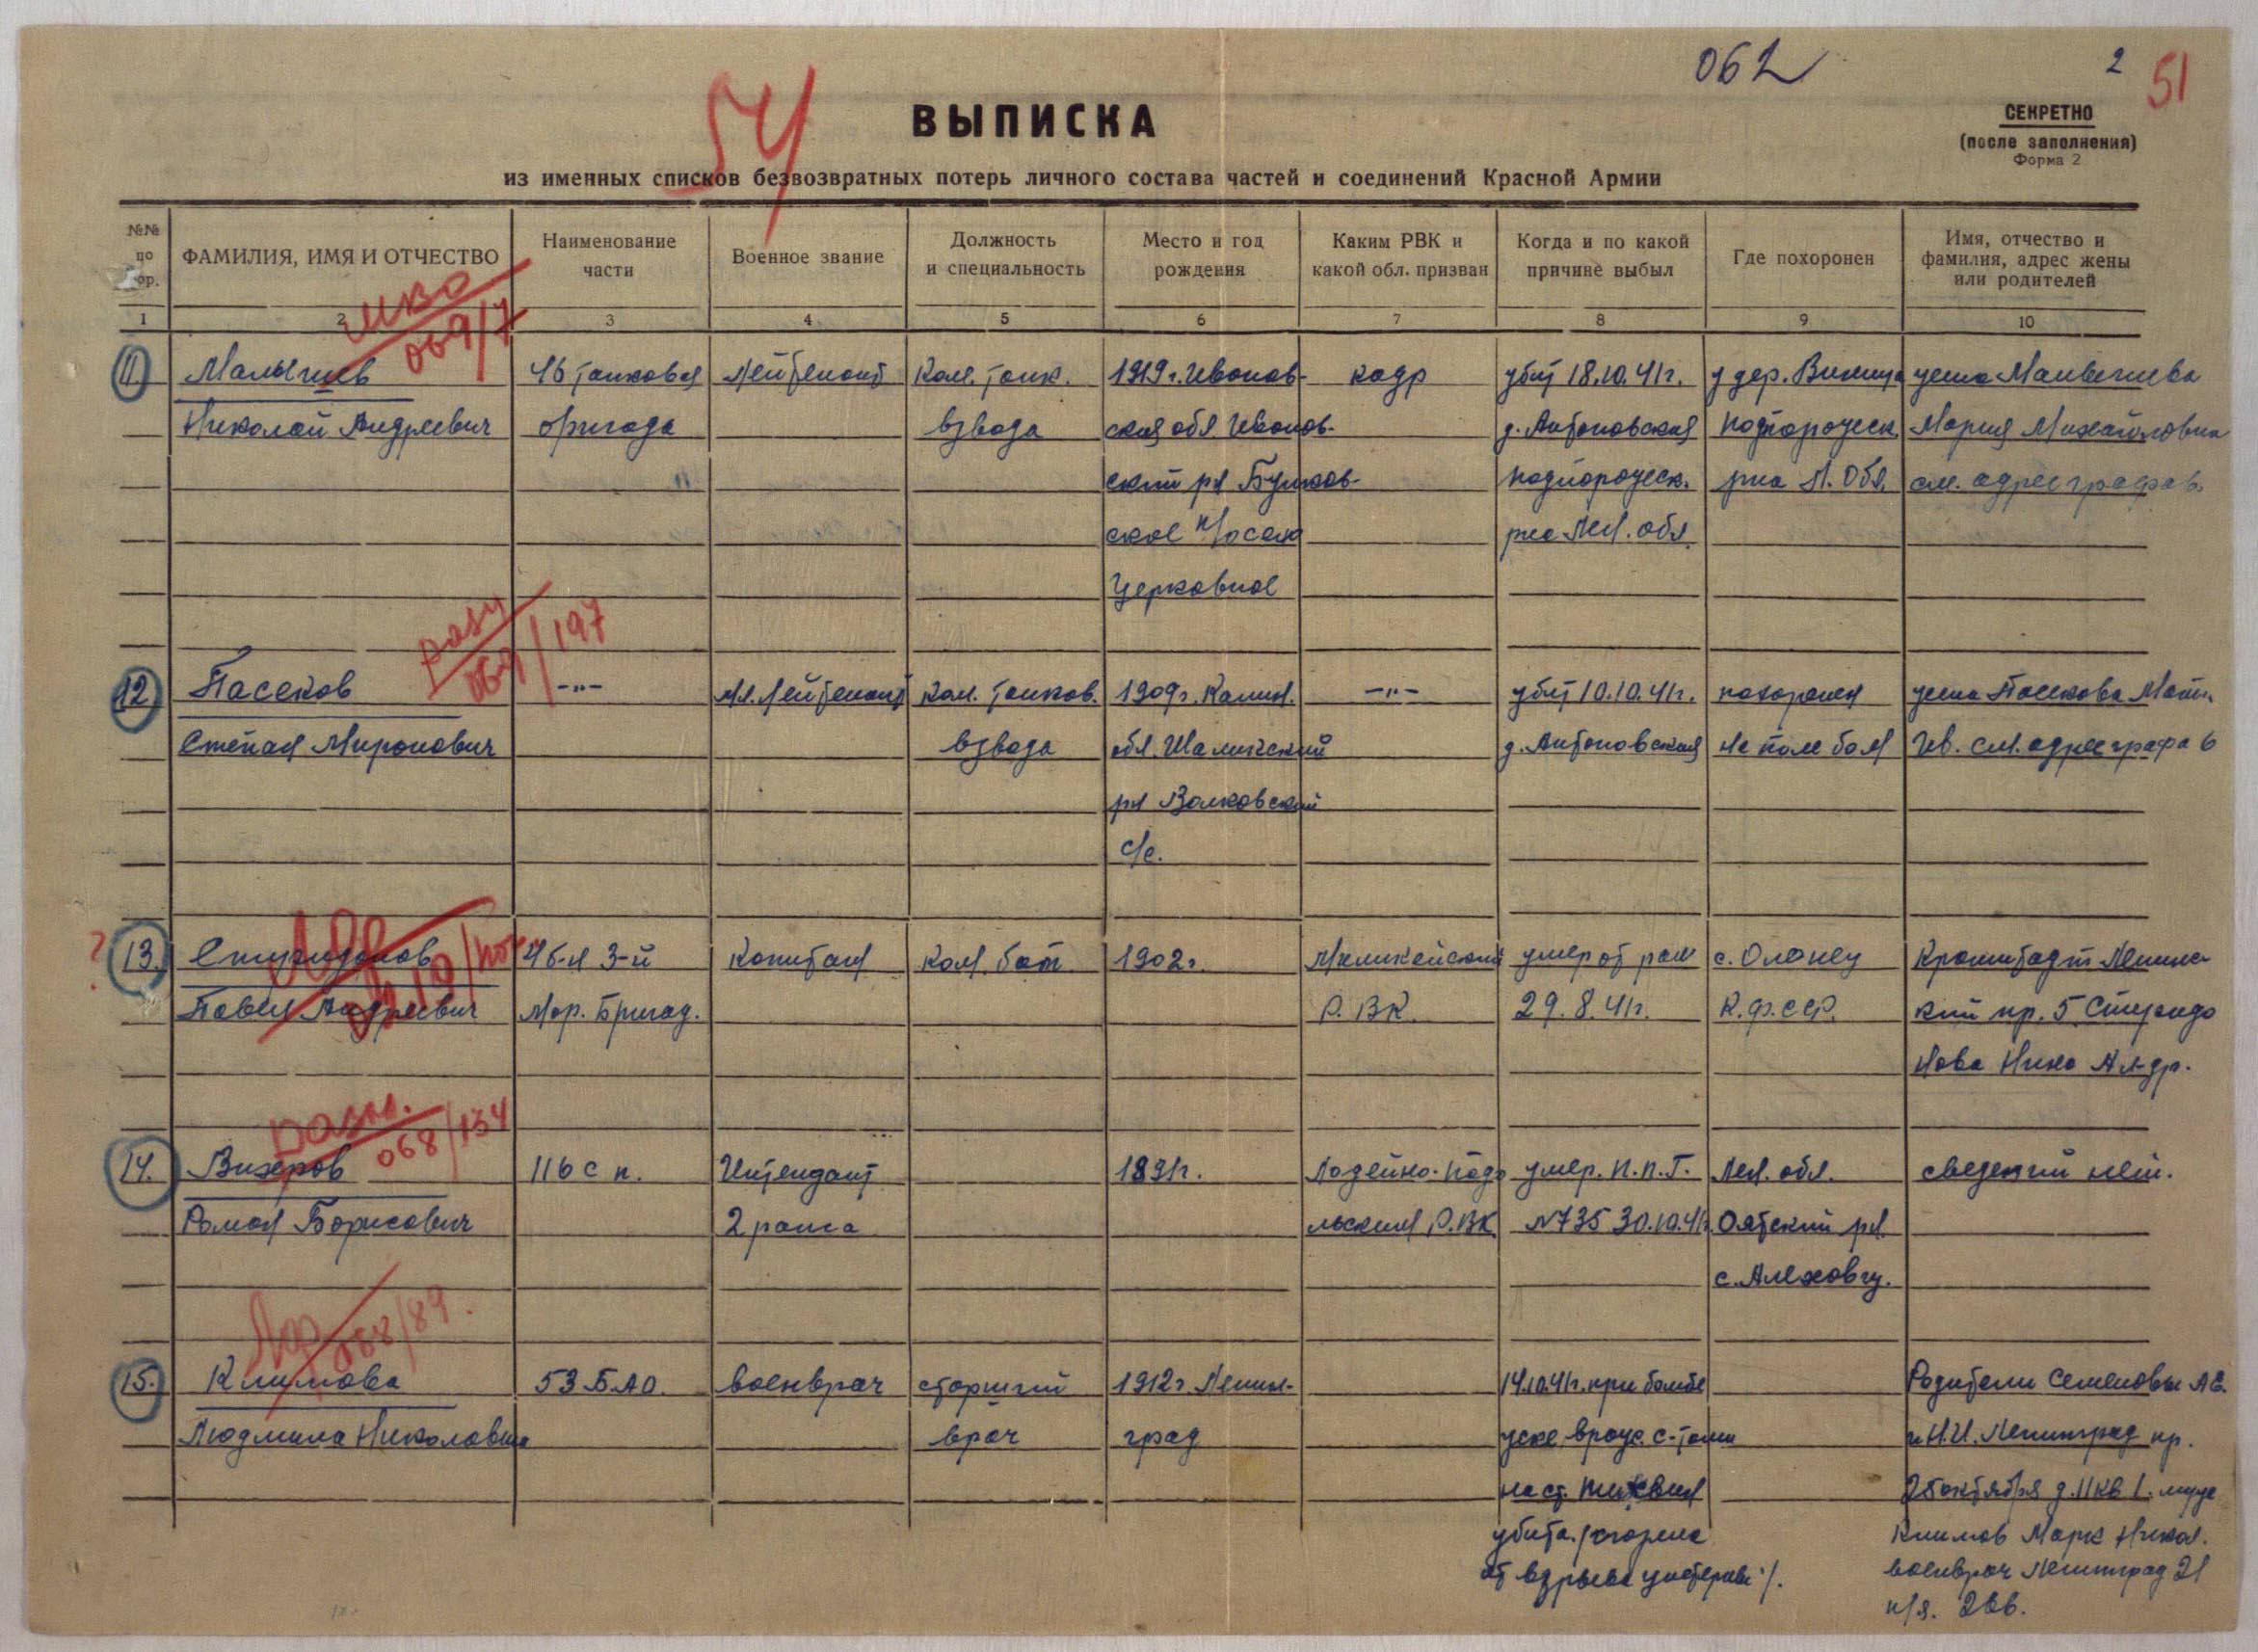 062
2
51
54
ВЫПИСКА
СЕКРЕТНО
(после заполнения)
Форма 2
из именных списков безвозвратных потерь личного состава частей и соединений Красной Армии
№№ по ор.
ФАМИЛИЯ, ИМЯ И ОТЧЕСТВО
Наименование части
Военное звание
Должность и специальность
Место и год рождения
Каким РВК и какой обл. призван
Когда и по какой причине выбыл
Где похоронен
Имя, отчество и фамилия, адрес жены или родителей
1 2 3 4 5 6 7 8 9 10
мво
069/7
11. Малышев 46 танковая лейтенант ком. танк. 1919 г. Иванов- кадр убит 18.10.41г. у дер. жена
Николай Андреевич бригада взвода ская обл. Иванов- д. Антоновская Подпорожск. Мария Михайловна
ский рн Буньков- Подпорожск. рна Л. Обл. см. адрес графа 6.
ское рна Лен. обл.
Церковное
069/197
12. Пасеков -"- мл. лейтенант ком. танков. 1909г. Калин. -"- убит 10.10.41г. похоронен жена Пасекова
Степан Миронович взвода обл. д. Антоновская на поле боя см. адрес графа 6
рн Волковский
с/с.
?
13. 4 б-н 3-й капитан ком. бат 1902г. умер от ран с. Олонец Кронштадт Ленинс-
Павел Андреевич Мор. Бригад. Р.ВК. 29.8.41г. К.Ф.ССР. кий пр. 5
нова Нина Ал-др.
разн.
068/134
14. Вихеров 116 с п. Интендант 1891г. Лодейно-Подо умер. П.П.Г. Лен. обл. сведений нет.
Роман Борисович 2 ранга льским Р.ВК №735 30.10.41г. Оятский рн.
с. Алеховщ.
068/89.
15. Климова 53 БАО. военврач старший 1912г. Ленин- 14.10.41г. при бомбе Родители Семеновы А.Е.
Людмила Николаевна врач град жке враж. с-тами и Н.И. Ленинград пр.
на ст. Тихвин 25 октября д. 11 кв 1. муж
убита. /сгорела Климов Марк Никол.
от взрыва цистерны/. военврач Ленинград 21
п/я. 266.